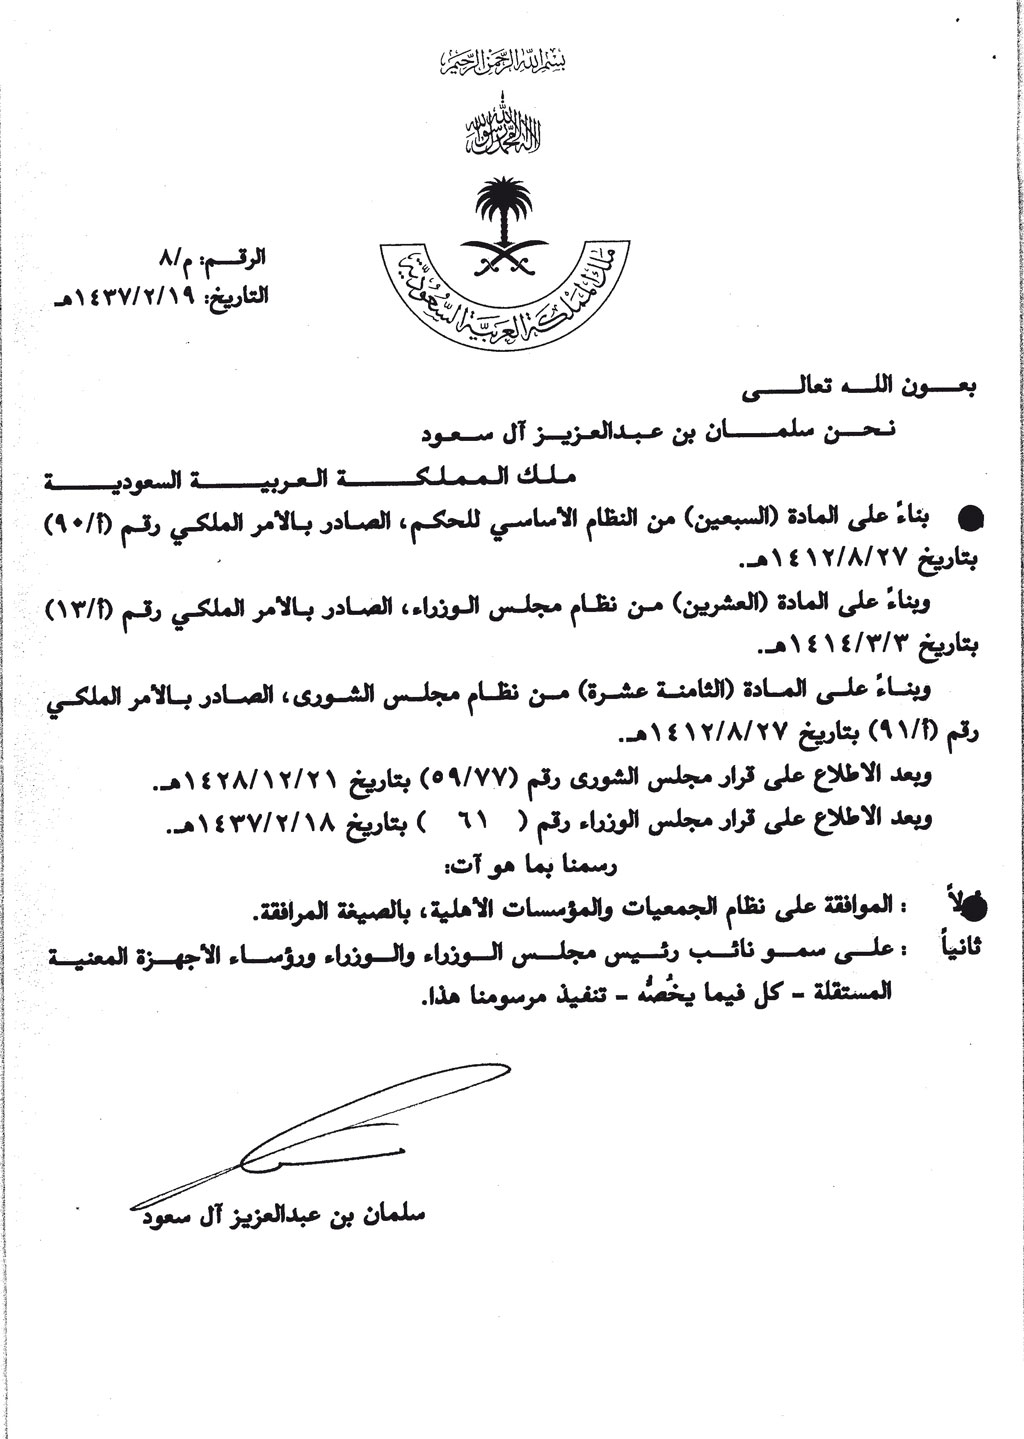 بسم الله الرحمن الرحيم
لا إله إلا الله محمد رسول الله
ملك المملكة العربية السعودية
الرقم: م/٨
التاريخ: ١٤٣٧/٢/١٩هـ
بعون الله تعالى
نحن سلمان بن عبدالعزيز آل سعود
ملك المملكة العربية السعودية
بناءً على المادة (السبعين) من النظام الأساسي للحكم، الصادر بالأمر الملكي رقم (أ/٩٠)
بتاريخ ١٤١٢/٨/٢٧هـ.
وبناءً على المادة (العشرين) من نظام مجلس الوزراء، الصادر بالأمر الملكي رقم (أ/١٣)
بتاريخ ١٤١٤/٣/٣هـ.
وبناءً على المادة (الثامنة عشرة) من نظام مجلس الشورى، الصادر بالأمر الملكي
رقم (أ/٩١) بتاريخ ١٤١٢/٨/٢٧هـ.
وبعد الاطلاع على قرار مجلس الشورى رقم (٥٩/٧٧) بتاريخ ١٤٢٨/١٢/٢١هـ.
وبعد الاطلاع على قرار مجلس الوزراء رقم ( ٦١ ) بتاريخ ١٤٣٧/٢/١٨هـ.
رسمنا بما هو آت:
: الموافقة على نظام الجمعيات والمؤسسات الأهلية، بالصيغة المرافقة.
ثانياً : على سمو نائب رئيس مجلس الوزراء والوزراء ورؤساء الأجهزة المعنية
المستقلة - كل فيما يخصُّه - تنفيذ مرسومنا هذا.
سلمان بن عبدالعزيز آل سعود